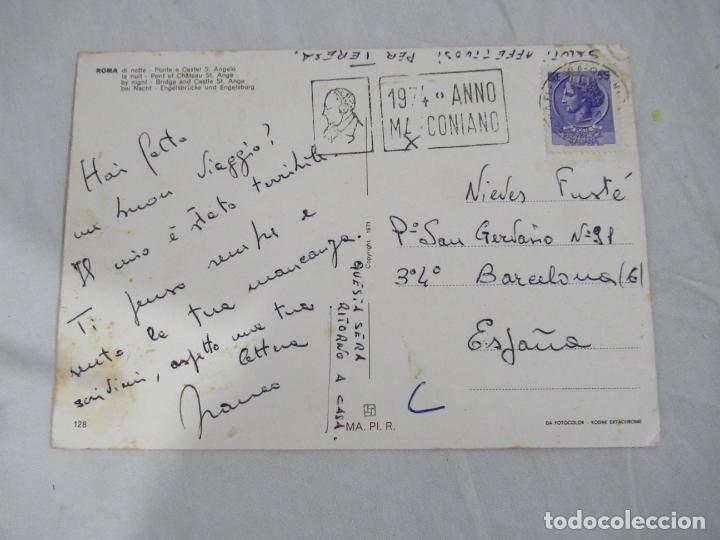 SALUTI AFFETTUOSI PER TERESA.
ROMA di notte - Ponte e Castel S. Angelo
la nuit - Pont et Château St. Ange
by night - Bridge and Castle St. Ange
bei Nacht - Engelsbrücke und Engelsburg
1974 ANNO
MARCONIANO
55
Hai fatto
un buon viaggio?
Il mio è stato terribile.
Ti penso sempre e
sento la tua mancanza.
scrivimi, aspetto una tua
lettera
Franco
QUESTA SERA
RITORNO A CASA.
Copyright 1971
Nieves Fusté
Pº San Gervasio Nº 91
3º4º Barcelona (6)
España
128
MA. PI. R.
DA FOTOCOLOR - KODAK EKTACHROME
todocoleccion
todocoleccion.net